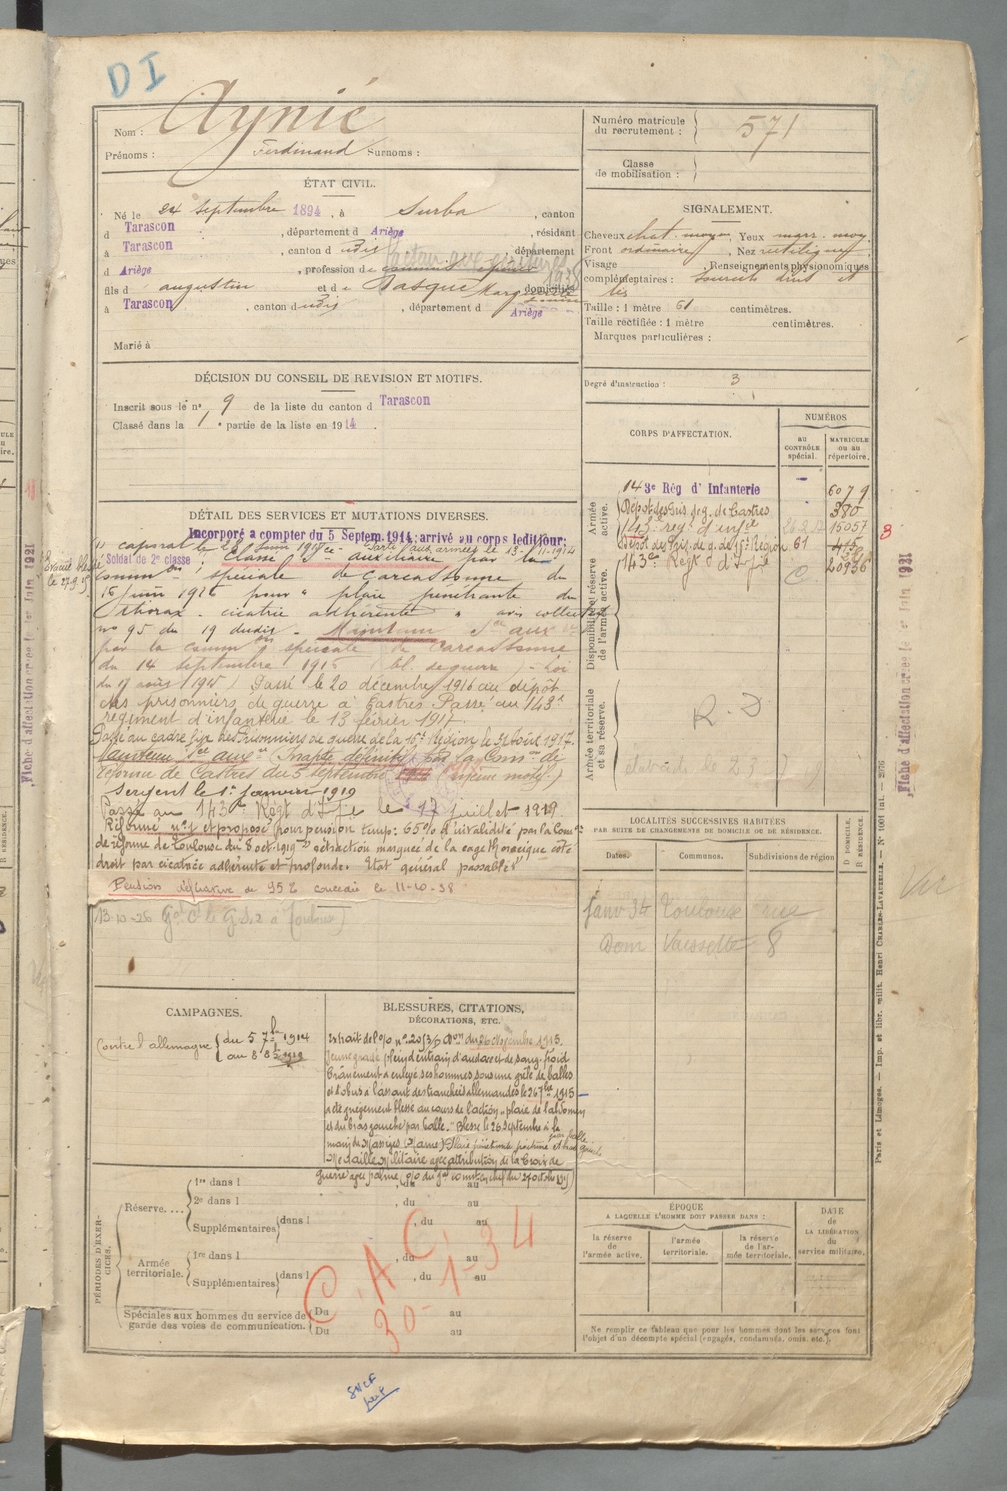 DI
Nom : Aynié
Prénoms : Ferdinand Surnoms :
ÉTAT CIVIL.
Né le 24 septembre 1894, à Surba, canton
d Tarascon, département d Ariège, résidant
à Tarascon, canton d udis, département
d Ariège, profession de commis épicier
facteur aux écritures 1938
fils d augustin et de Pasque Marguerite domiciliés
à Tarascon, canton d udis, département d Ariège
Marié à
DÉCISION DU CONSEIL DE REVISION ET MOTIFS.
Inscrit sous le n° 9 de la liste du canton d Tarascon
Classé dans la 1e partie de la liste en 1914.
DÉTAIL DES SERVICES ET MUTATIONS DIVERSES.
Incorporé a compter du 5 Septem. 1914; arrivé au corps ledit jour;
Soldat de 2e classe
caporal le 28 juin 1915
Parti aux armées le 13-11-1914
Evacué blessé le 27.9.15
Classé service auxiliaire par la
Common spéciale de Carcassonne du
16 juin 1916 pour « plaie pénétrante du
thorax. cicatrice adhérente » avis collectif
n° 95 du 19 dudis. Maintenu Sce auxre
par la common spéciale de Carcassonne
du 14 septembre 1916 (bl. de guerre) - Loi
du 17 août 1915) Passé le 20 décembre 1916 au dépôt
des prisonniers de guerre à Castres Passé au 143e
régiment d'infanterie le 13 février 1917.
Passé au cadre fixe des Prisonniers de guerre de la 15e Région le 31 Août 1917.
Maintenu Sce auxre (Inapte définitif) par la Comon de
réforme de Castres du 5 septembre (même motif.)
Sergent le 1er janvier 1919
Passé au 143e Régt d'Ife le 17 juillet 1919.
Réformé n°1 et proposé pour pension temp: 65% d'invalidité par la Comon
de réforme de Toulouse du 8 oct. 1919 rétraction marquée de la cage thoracique côté
droit par cicatrice adhérente et profonde. Etat général passable
Pension définitive de 95% concédée le 11-10-38
13-10-26
CAMPAGNES.
Contre l'allemagne du 5 7bre 1914
au 8 8bre 1919
BLESSURES, CITATIONS,
DÉCORATIONS, ETC.
Extrait de l'o/o n° du 26 Novembre 1915.
Jeune gradé plein d'entrain d'audace et de sang-froid
Crânement a enlevé ses hommes sous une grêle de balles
et d'obus à l'assaut des tranchées allemandes le 26 7bre 1915
a été grièvement blessé au cours de l'action « plaie de l'abdomen
et du bras gauche par balle. » Blessé le 26 Septembre à la
main de Massiges (Marne) Plaie pénétrante poitrine et bras gauche par balle
Médaille Militaire avec attribution de la Croix de
Guerre avec palme, o/o du gal comt en chef du 27 octobre 1915
PÉRIODES D'EXERCICES.
Réserve....
1re dans l , du au
2e dans l , du au
Supplémentaires dans l , du au
Armée territoriale.
1re dans l , du au
Supplémentaires dans l , du au
Spéciales aux hommes du service de garde des voies de communication.
Du au
Du au
C.A.C. 30-1-34
SNCF
Numéro matricule du recrutement : 571
Classe de mobilisation :
SIGNALEMENT.
Cheveux chat. moyen, Yeux marr. moy.
Front ordinaire, Nez rectiligne
Visage , Renseignements physionomiques
complémentaires : Sourcils drus et
Taille : 1 mètre 61 centimètres.
Taille rectifiée : 1 mètre centimètres.
Marques particulières :
Degré d'instruction : 3
CORPS D'AFFECTATION.
NUMÉROS
au CONTRÔLE spécial.
MATRICULE ou au répertoire.
Armée active.
143e Rég d'Infanterie 6079
Dépôt des Pris. de g. de Castres 380
143e régt d'infie 15057
Dépôt des Pris. de g. de 15e Région 61 415
143e Régt d'Ife 20936
8
Disponibilité et réserve de l'armée active.
C
Armée territoriale et sa réserve.
R.D
LOCALITÉS SUCCESSIVES HABITÉES
PAR SUITE DE CHANGEMENTS DE DOMICILE OU DE RÉSIDENCE.
Dates. Communes. Subdivisions de région
D DOMICILE, R RÉSIDENCE.
Janv 34 Toulouse rue
Dom Vaissette 8
ÉPOQUE
A LAQUELLE L'HOMME DOIT PASSER DANS :
la réserve de l'armée active.
l'armée territoriale.
la réserve de l'armée territoriale.
DATE DE LA LIBÉRATION du service militaire.
Ne remplir ce tableau que pour les hommes dont les services font
l'objet d'un décompte spécial (engagés, condamnés, omis, etc.).
Paris et Limoges. — Imp. et libr. milit. Henri CHARLES-LAVAUZELLE. — N° 1001 ini. — 2076
Fiche d'affectation créée le 1er Juin 1921
Fiche d'affectation créée le 1er Juin 1921